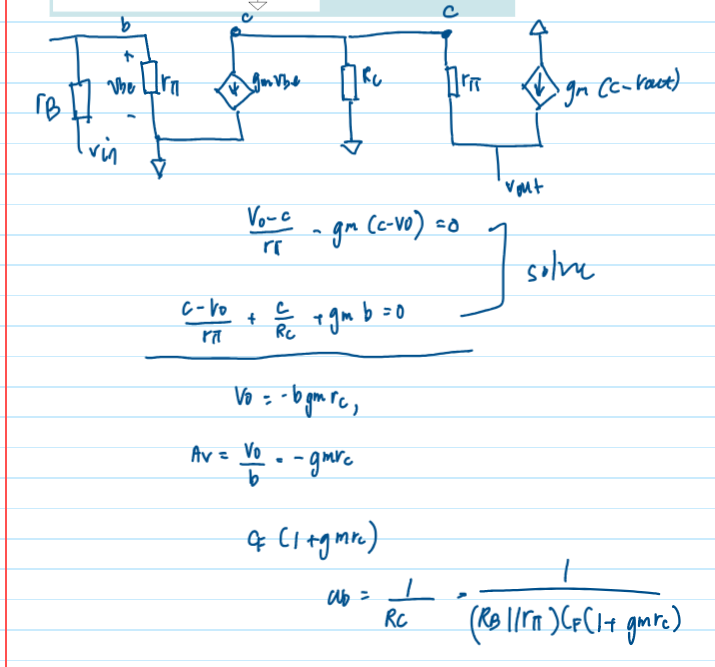 b c c
+
rB vbe rπ gmvbe Rc rπ gm (c-vout)
-
vin
vout
Vo-c / rπ - gm (c-Vo) = 0
solve
c-Vo / rπ + c / Rc + gm b = 0
Vo = -b gm rc,
Av = Vo / b = -gmrc
CF (1+gmrc)
ωb = 1 / RC = 1 / (RB||rπ)CF(1+ gmrc)